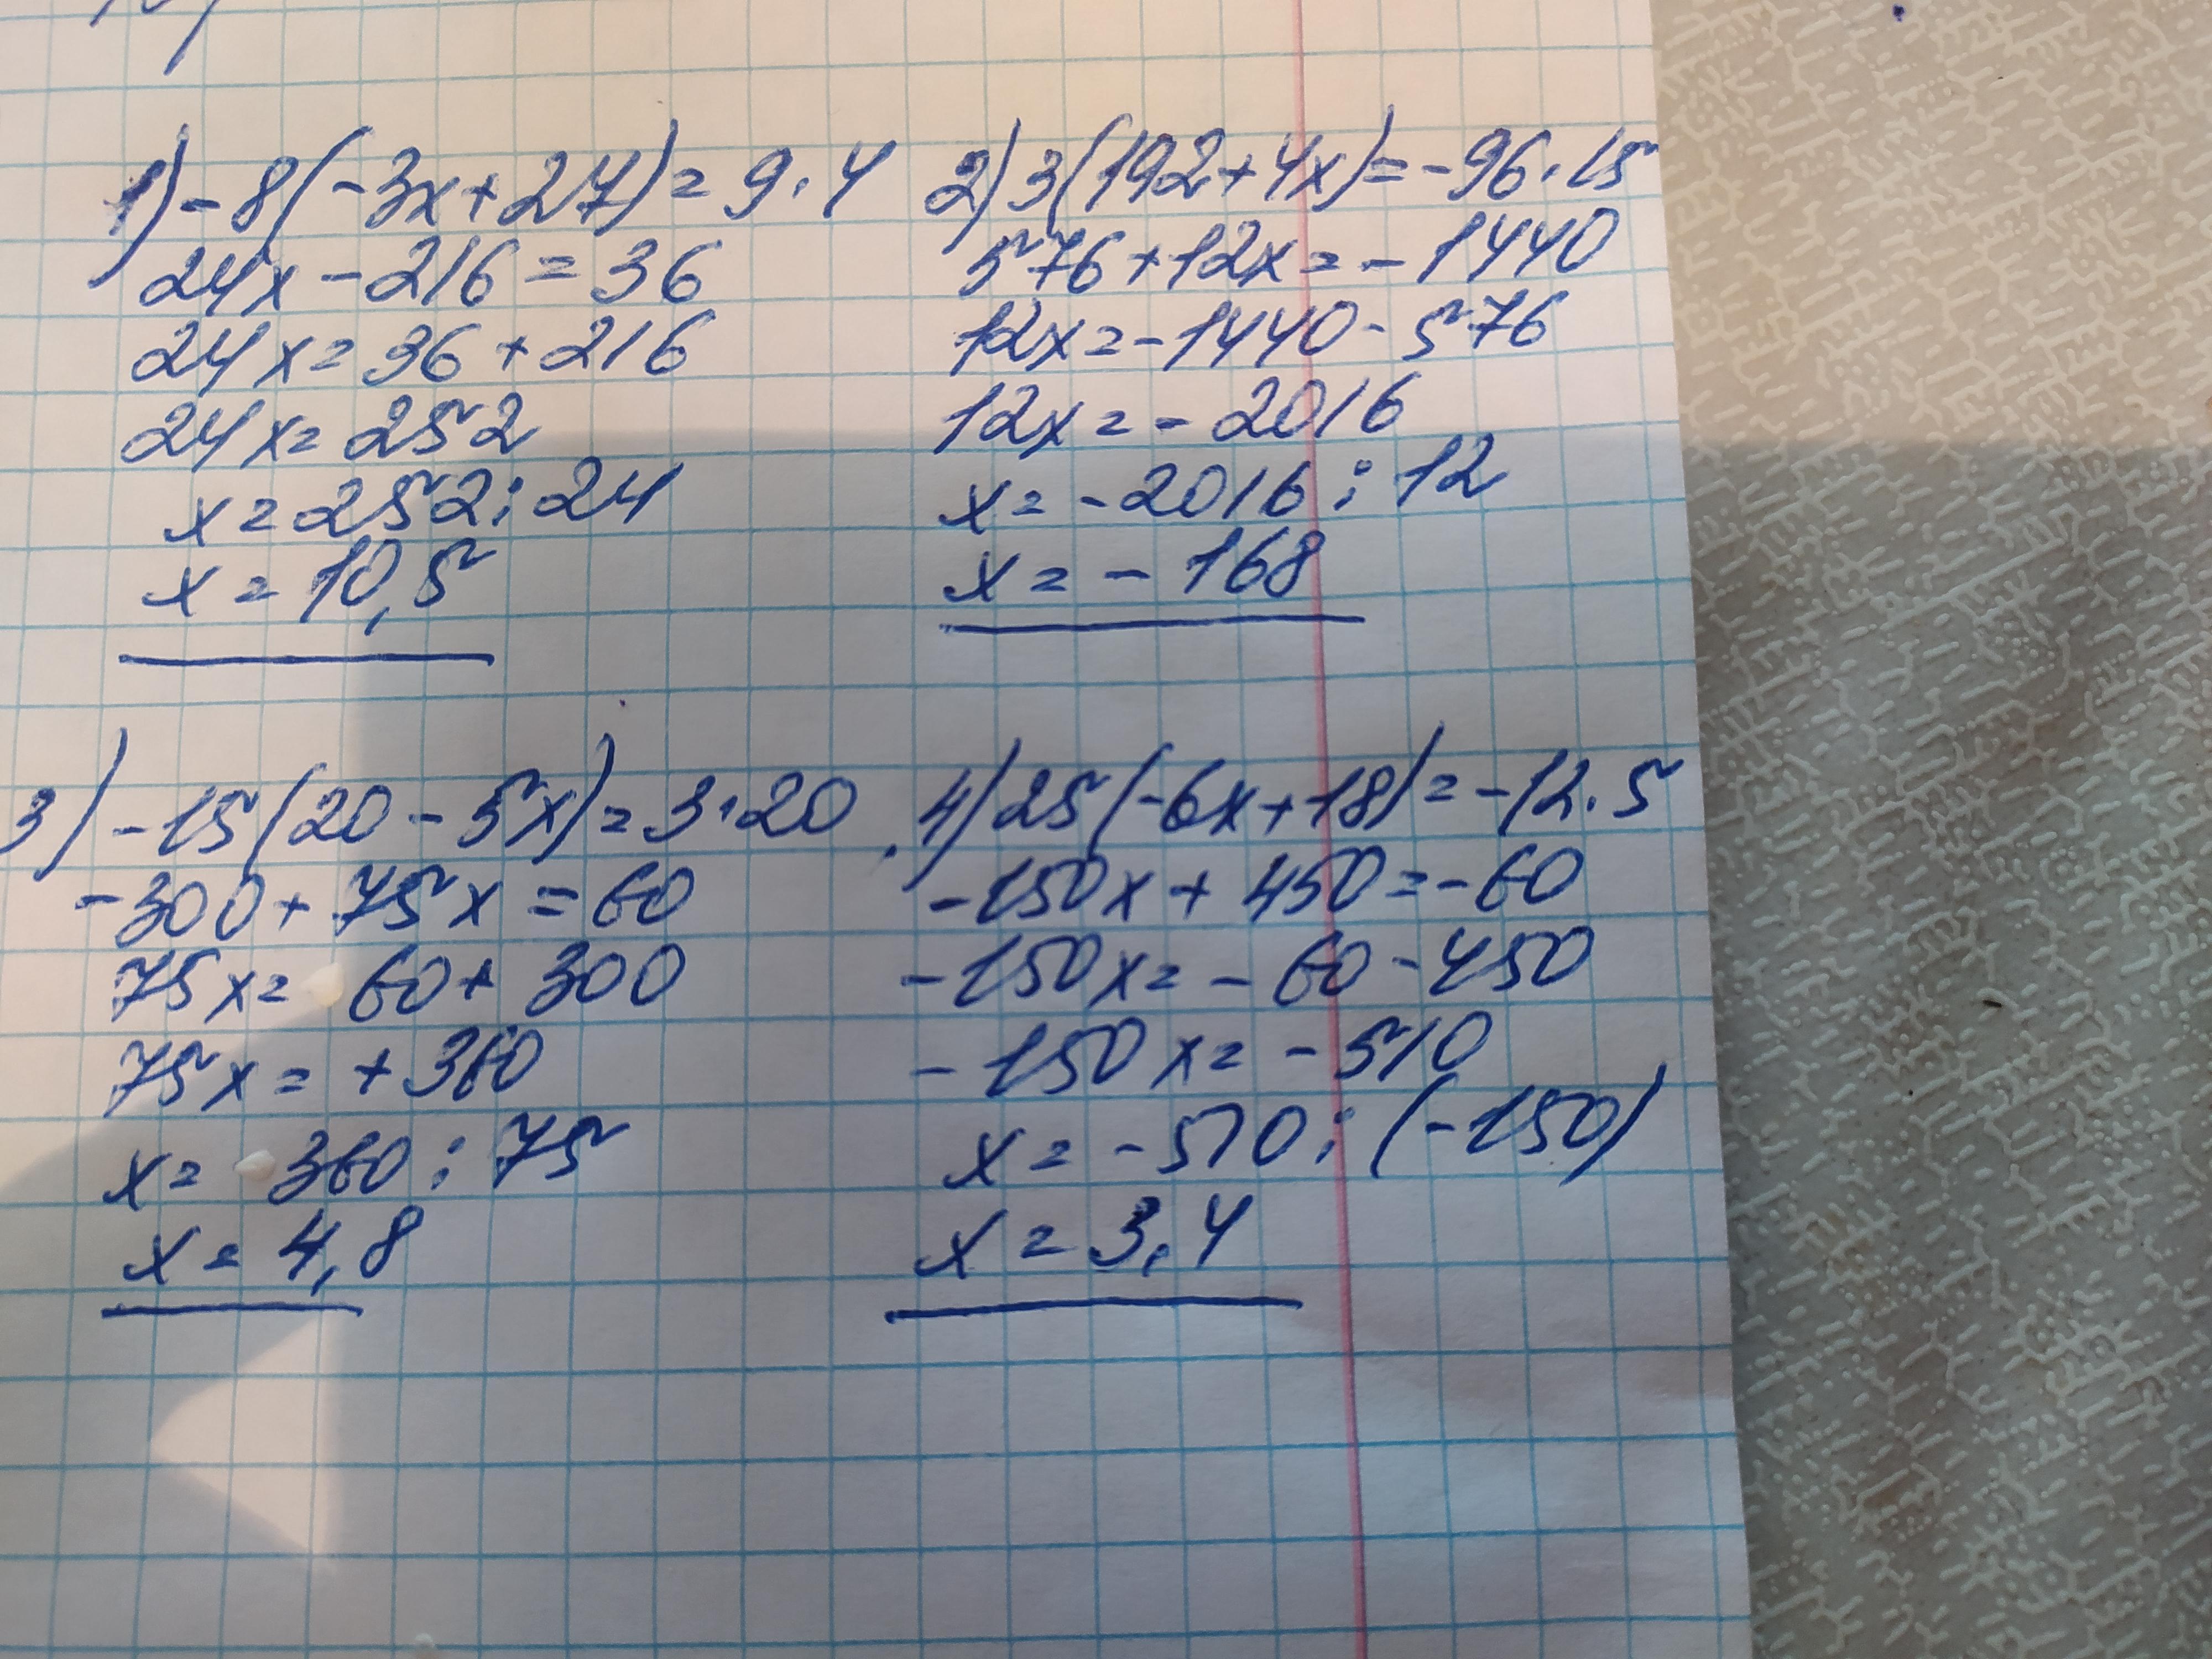 1) -8(-3x+27)=9·4
24x-216=36
24x=36+216
24x=252
x=252:24
x=10,5
2) 3(192+4x)=-96·15
576+12x=-1440
12x=-1440-576
12x=-2016
x=-2016:12
x=-168
3) -15(20-5x)=3·20
-300+75x=60
75x=60+300
75x=+360
x=360:75
x=4,8
4) 25(-6x+18)=-12·5
-150x+450=-60
-150x=-60-450
-150x=-510
x=-510:(-150)
x=3,4